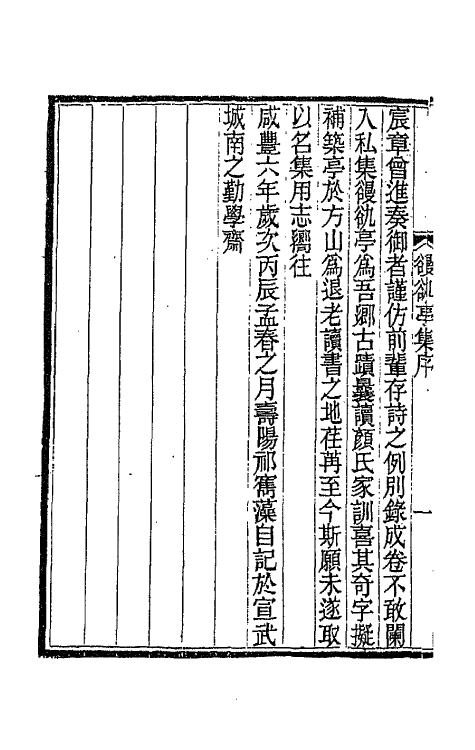 䜱䜪亭集序
一
宸章曾進奏御者謹仿前輩存詩之例別錄成卷不敢闌
入私集䜱䜪亭爲吾鄉古蹟曩讀顏氏家訓喜其奇字擬
補築亭於方山爲退老讀書之地荏苒至今斯願未遂取
以名集用志嚮往
咸豐六年歲次丙辰孟春之月壽陽祁寯藻自記於宣武
城南之勤學齋